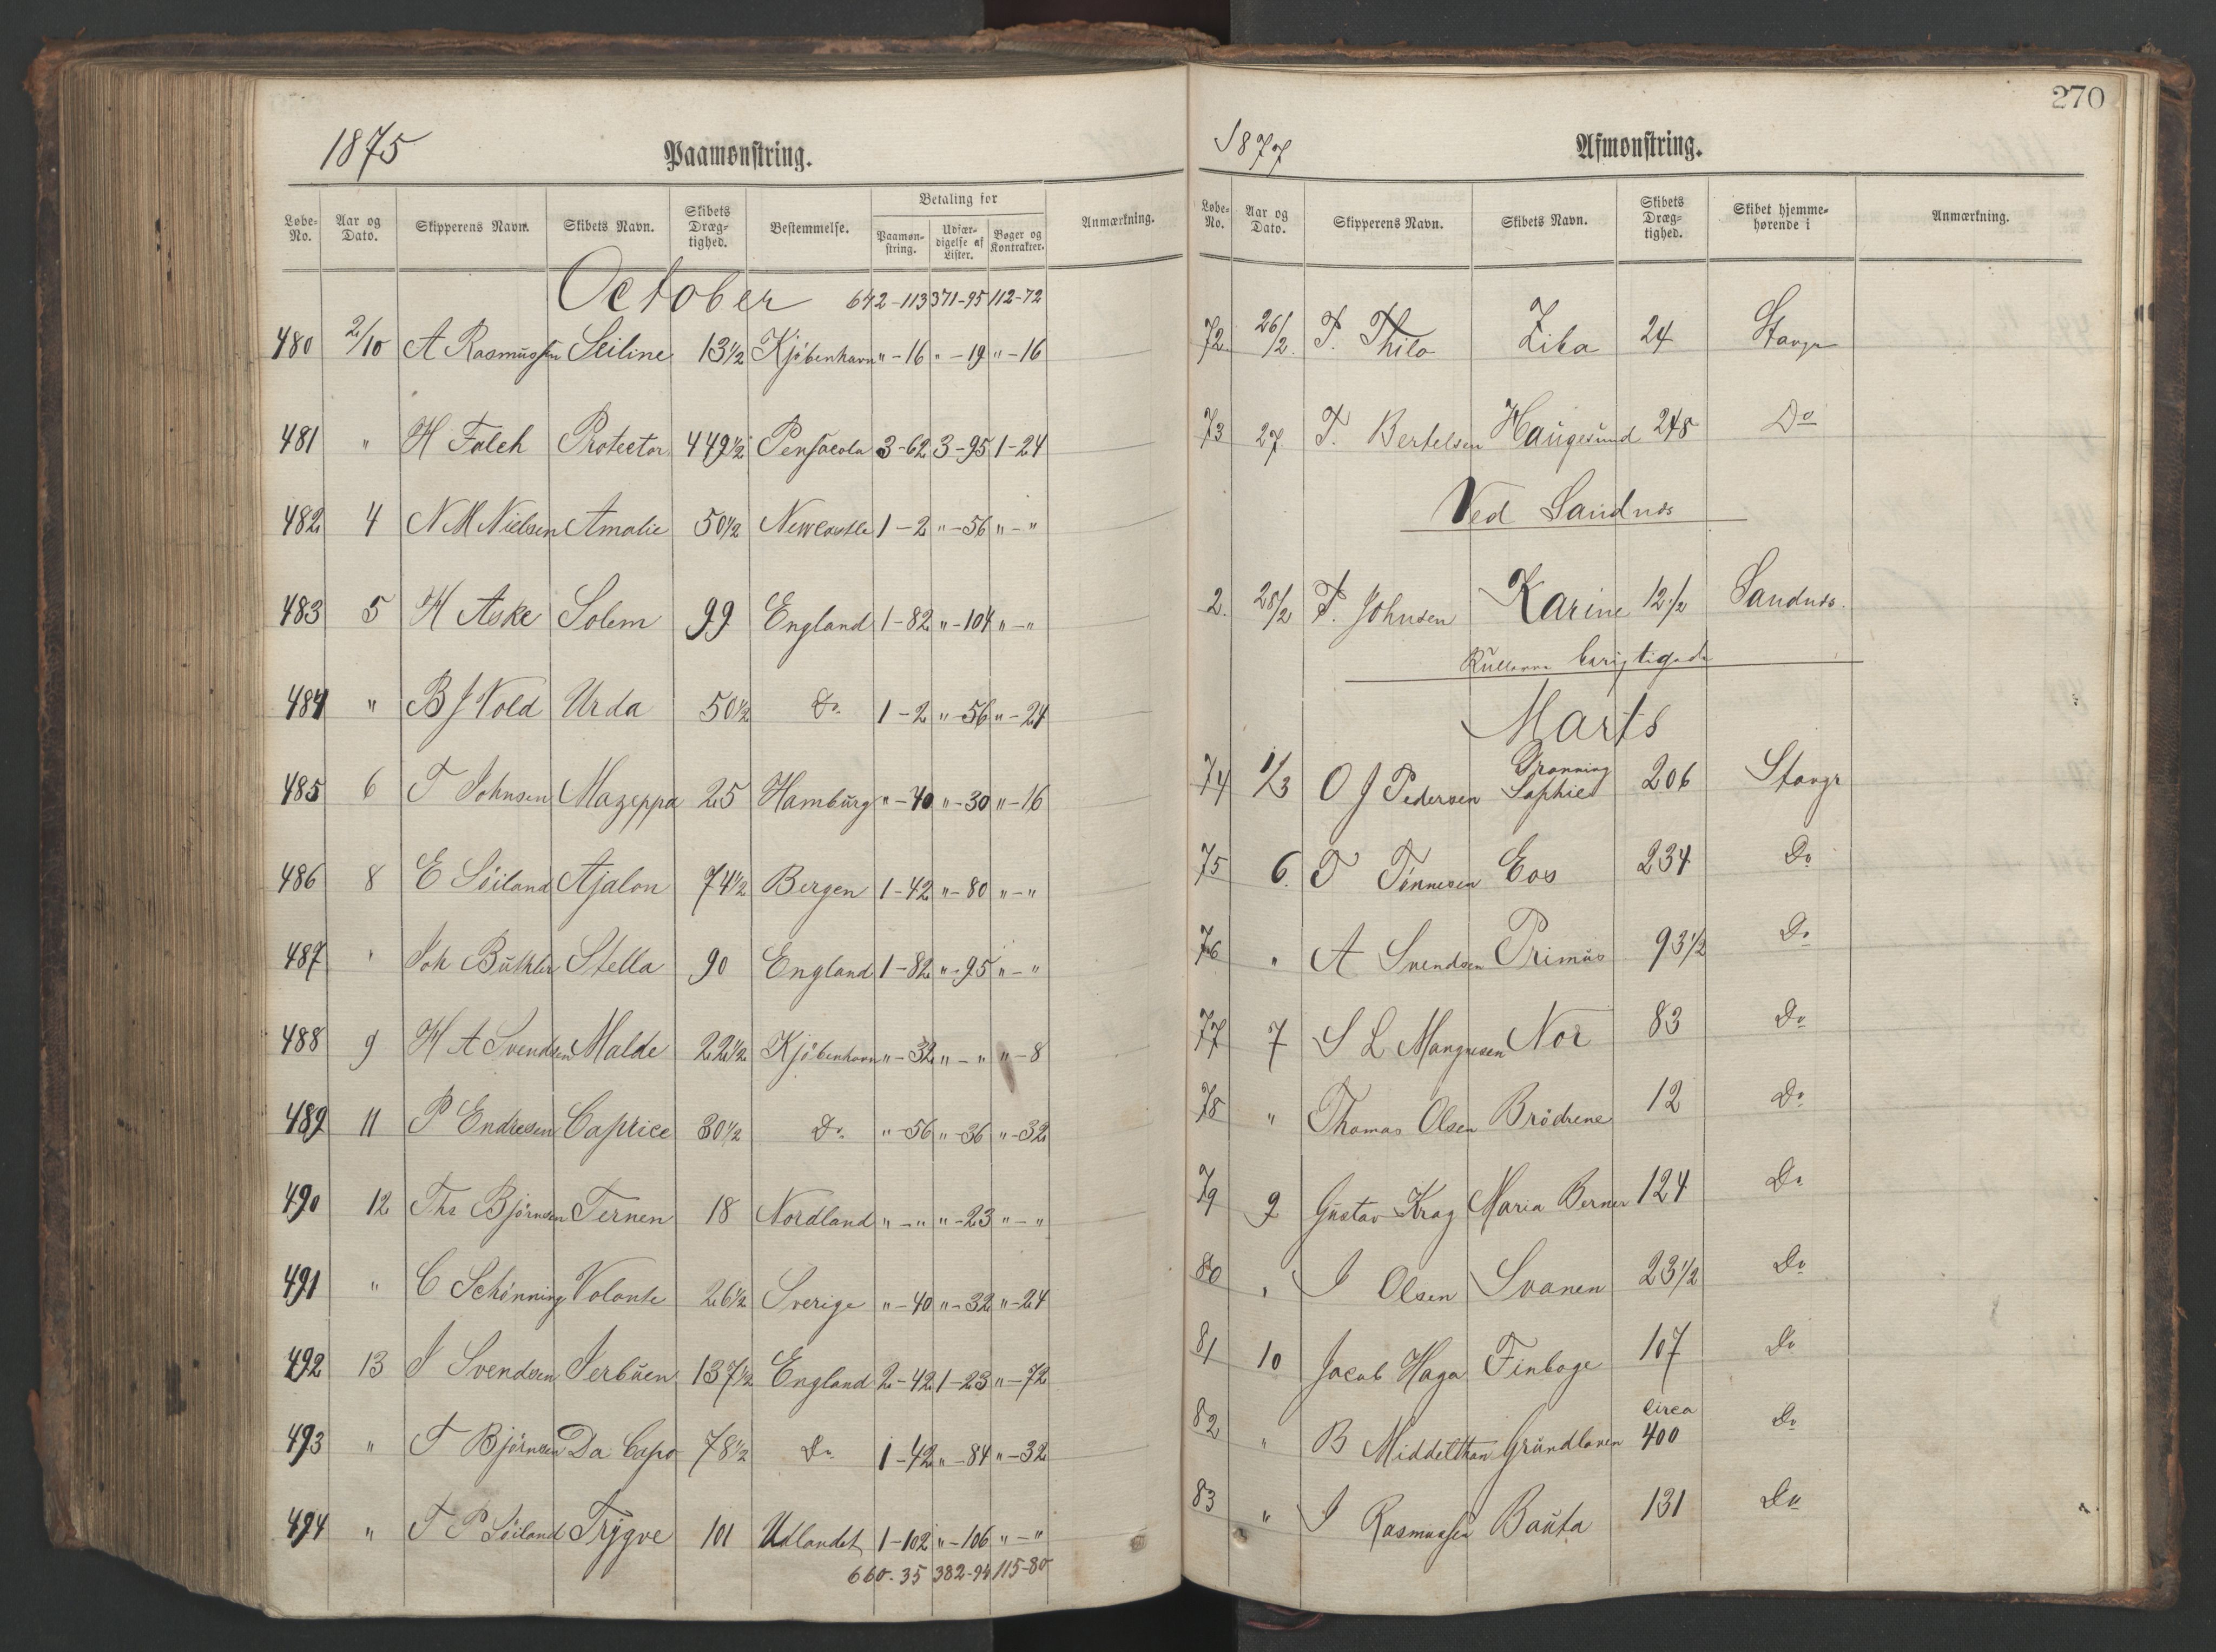 1875
Paamønstring.
Løbe-No. Aar og Dato. Skipperens Navn. Skibets Navn. Skibets Dræg-tighed. Bestemmelse. Betaling for Paamøn-string. Udfær-digelse af Lister. Bøger og Kontrakter. Anmærkning.
October 642-113 371-95 112-72
480 2/10 A Rasmussen Seiline 13 1/2 Kjöbenhavn " - 16 " - 19 " - 16
481 " H Falch Protector 449 1/2 Pensacola 3-62 3-95 1-24
482 4 N M Nielsen Amalie 50 1/2 Newcastle 1-2 " - 56 " - "
483 5 H Aske Solem 99 England 1-82 " - 104 " - "
484 " B J Vold Urda 50 1/2 Do 1-2 " - 56 " - 24
485 6 T Johnsen Mazeppa 25 Hamburg " - 40 " - 30 " - 16
486 8 E Söiland Ajalon 74 1/2 Bergen 1-42 " - 80 " - "
487 " Joh Stella 90 England 1-82 " - 95 " - "
488 9 H A Svendsen Malde 22 1/2 Kjöbenhavn " - 32 " - " " - 8
489 11 P Endresen Caprice 30 1/2 Do " - 56 " - 36 " - 32
490 12 Ths Björnsen Ternen 18 Nordland " - " " - 23 " - "
491 " C Schönning Volante 26 1/2 Sverige " - 40 " - 32 " - 24
492 13 J Svendsen Jerbuen 137 1/2 England 2-42 1-23 " - 72
493 " T Björnsen Da Capo 78 1/2 Do 1-42 " - 84 " - 32
494 " T P Söiland Trygve 101 Udlandet 1-102 " - 106 " - "
660-35 382-94 115-80
270
1877
Afmønstring.
Løbe-No. Aar og Dato. Skipperens Navn. Skibets Navn. Skibets Dræg-tighed. Skibet hjemme-hørende i Anmærkning.
72 26/2 T. Thilo Ziba 24 Stavgr
73 27 T. Bertelsen Haugesund 248 Do
Ved Sandnds
2. 28/2 T. Johnsen Karine 12 1/2 Sandnds.
Rullerne
Marts
74 1/3 O J Pedersen Dronning Sophie 206 Stavgr
75 6. T Tönnesen Eos 234 Do
76 " A Svendsen Primus 93 1/2 Do
77 7 S L Mangnesen Nor 83 Do
78 " Thomas Olsen Brödrene 12 Do
79 9 Gustav Krag Maria Berner 124 Do
80 " J Olsen Svanen 23 1/2 Do
81 10 Jacob Haga Finboge 107 Do
82 " B Middelthon Grundloven circa 400 Do
83 " J Rasmussen Bauta 131 Do